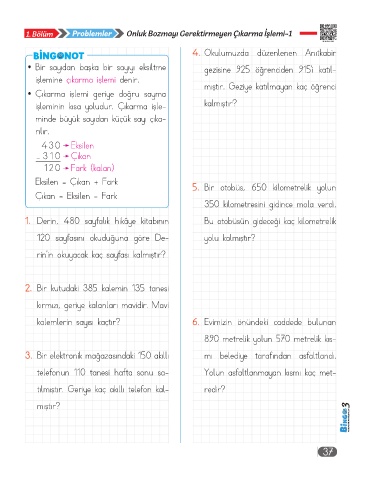 1. Bölüm Problemler Onluk Bozmayı Gerektirmeyen Çıkarma İşlemi-1
BİNGO NOT
• Bir sayıdan başka bir sayıyı eksiltme
işlemine çıkarma işlemi denir.
• Çıkarma işlemi geriye doğru sayma
işleminin kısa yoludur. Çıkarma işle-
minde büyük sayıdan küçük sayı çıka-
rılır.
430 → Eksilen
- 310 → Çıkan
120 → Fark (kalan)
Eksilen = Çıkan + Fark
Çıkan = Eksilen - Fark
1. Derin, 480 sayfalık hikâye kitabının
120 sayfasını okuduğuna göre De-
rin'in okuyacak kaç sayfası kalmıştır?
2. Bir kutudaki 385 kalemin 135 tanesi
kırmızı, geriye kalanları mavidir. Mavi
kalemlerin sayısı kaçtır?
3. Bir elektronik mağazasındaki 150 akıllı
telefonun 110 tanesi hafta sonu sa-
tılmıştır. Geriye kaç akıllı telefon kal-
mıştır?
4. Okulumuzda düzenlenen Anıtkabir
gezisine 925 öğrenciden 915'i katıl-
mıştır. Geziye katılmayan kaç öğrenci
kalmıştır?
5. Bir otobüs, 650 kilometrelik yolun
350 kilometresini gidince mola verdi.
Bu otobüsün gideceği kaç kilometrelik
yolu kalmıştır?
6. Evimizin önündeki caddede bulunan
890 metrelik yolun 570 metrelik kıs-
mı belediye tarafından asfaltlandı.
Yolun asfaltlanmayan kısmı kaç met-
redir?
BİNGO 3
37